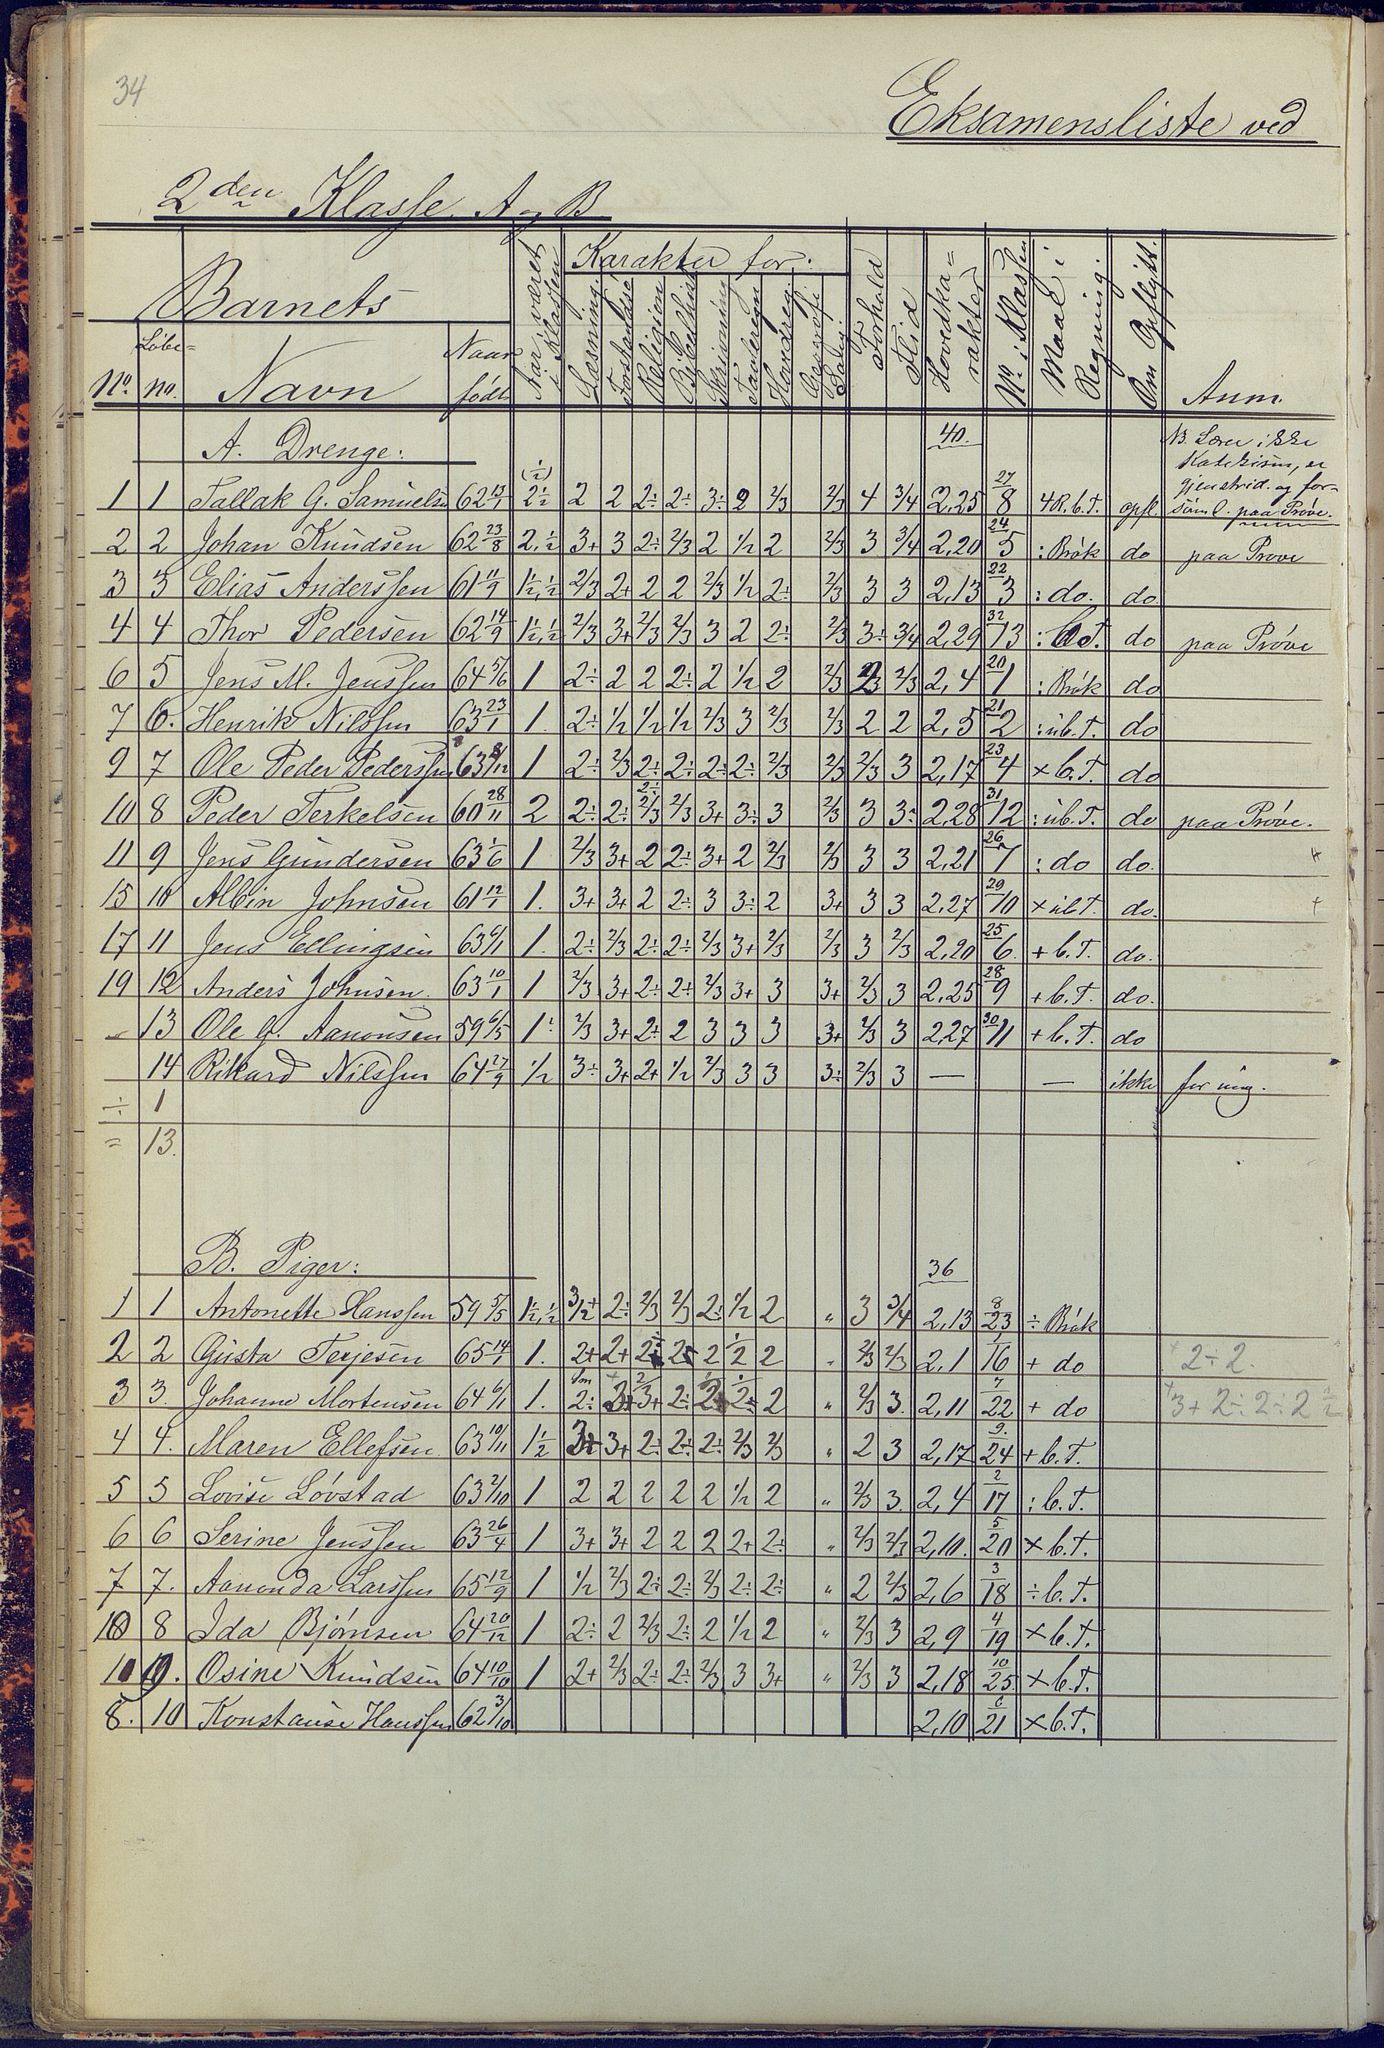 34
Eksamensliste ved
2den Klasse A og B
Barnets
Karakter for:
No. Løbe-no. Navn Naar født Aar været i Klassen Læsning. Forstandsø. Religion Bibelhist. Skrivning Tavleregn Hovdreg. Geografi Sang Forhold Flid Hovedka=rakter No. i Klassen Maal i Regning. Om Opflytt. Anm.
A. Drenge: 40.
NB. Lærer ikke
Katekism, er
gjenstrid. og for-
söml. paa Prøve.
1 1 Tallak G. Samuelsn 62 13/1 (½) 2½ 2 2 2÷ 2÷ 3÷ 2 2/3 2/3 4 3/4 2,25 27/8 4R.b.T. opfl.
2 2 Johan Knudsen 62 23/8 2,½ 3+ 3 2÷ 2/3 2 1/2 2 2/3 3 3/4 2,20 24/5 : Brök do paa Prøve
3 3 Elias Anderssen 61 11/9 1½,½ 2/3 2+ 2 2 2/3 1/2 2÷ 2/3 3 3 2,13 22/3 : do. do
4 4 Thor Pedersen 62 14/9 1½,½ 2/3 3+ 2/3 2/3 3 2 2÷ 2/3 3÷ 3/4 2,29 32/13 : b.T. do paa Prøve
6 5 Jens M. Jenssen 64 5/6 1 2÷ 2 2 2÷ 2 1/2 2 2/3 2/3 2/3 2,4 20/1 : Brök do
7 6. Henrik Nilssen 63 23/1 1. 2÷ 1/2 1/2 1/2 2/3 3 2/3 2/3 2 2 2,5 21/2 : ub.T. do
9 7 Ole Peder Pederssen 63 8/12 1 2÷ 2/3 2÷ 2÷ 2÷ 2÷ 2/3 2/3 2/3 3 2,17 23/4 × b.T. do
10 8 Peder Terkelsen 60 28/11 2 2÷ 2÷ 2÷ 2/3 2/3 3+ 3÷ 3 2/3 3 3÷ 2,28 31/12 : ub.T. do paa Prøve.
11 9 Jens Gundersen 63 1/6 1 2/3 3+ 2 2÷ 3+ 2 2/3 2/3 3 3 2,21 26/7 : do do. +
15 10 Albin Johnsen 61 12/1 1. 3+ 3+ 2 2÷ 3 3÷ 2 3+ 3 3 2,27 29/10 × ubT. do. +
17 11 Jens Ellingsen 63 6/1 1. 2÷ 2/3 2÷ 2÷ 2/3 3+ 2/3 2/3 3 2/3 2,20 25/6. + b.T. do.
19 12 Anders Johnsen. 63 10/1 1 2/3 3+ 2÷ 2÷ 2/3 3+ 3 3+ 2/3 3 2,25 28/9 + b.T. do.
13 Ole G. Aanonsen 59 6/5 1÷ 2/3 3+ 2÷ 2 3 3 3 3+ 2/3 3 2,27 30/11 + b.T. do
14 Rikard Nilssen 64 27/9 1/2 3÷ 3+ 2+ 1/2 2/3 3 3 3÷ 2/3 3 — — ikke for ung.
÷ 1
= 13.
B. Piger: 36
1 1 Antonette Hanssen 59 5/5 1½,½ 3+/2 2÷ 2/3 2/3 2÷ 1/2 2 " 3 3/4 2,13 8/23 ÷ Brök
2 2 Gusta Terjesen 65 14/1 1. 2+ 2+ 2÷ 2÷ 2 1/2 2 " 2/3 2/3 2,1 1/16 + do + 2÷2.
3 3. Johanne Mortensen 64 6/1 1. 2÷ 3+ 2/3+ 2÷ 2 2÷ 2 " 2/3 3. 2,11 7/22 + do + 3+ 2÷ 2÷ 2 ½
4 4. Maren Ellefsen 63 10/11 1½ 3+ 3+ 2÷ 2÷ 2÷ 2/3 2/3 " 2 3 2,17 9./24 + b.T.
5 5 Lovise Løvstad 63 2/10 1 2 2 2 2 2 1/2 2 " 2/3 3. 2,4 2/17 : b.T.
6 6 Serine Jenssen 63 26/4 1 3+ 3+ 2 2 2 2+ 2÷ " 2/3 2/3 2,10. 5/20 × b.T.
7 7. Aanonda Larssen 65 12/9 1 1/2 2/3 2÷ 2÷ 2/3 2÷ 2÷ " 2 2/3 2,6 3/18 ÷ b.T.
10 8 Ida Bjørnsen 64 20/12 1 2÷ 2 2/3 2÷ 2 1/2 2 " 2/3 3 2,9 4/19 × b.T.
11 9. Osine Knudsen 64 10/10 1 2+ 2/3 2÷ 2÷ 2/3 3 3+ " 2/3 3 2,18 10/25. × b.T.
8. 10 Konstanse Hanssen 62 3/10 2,10 6/21 × b.T.